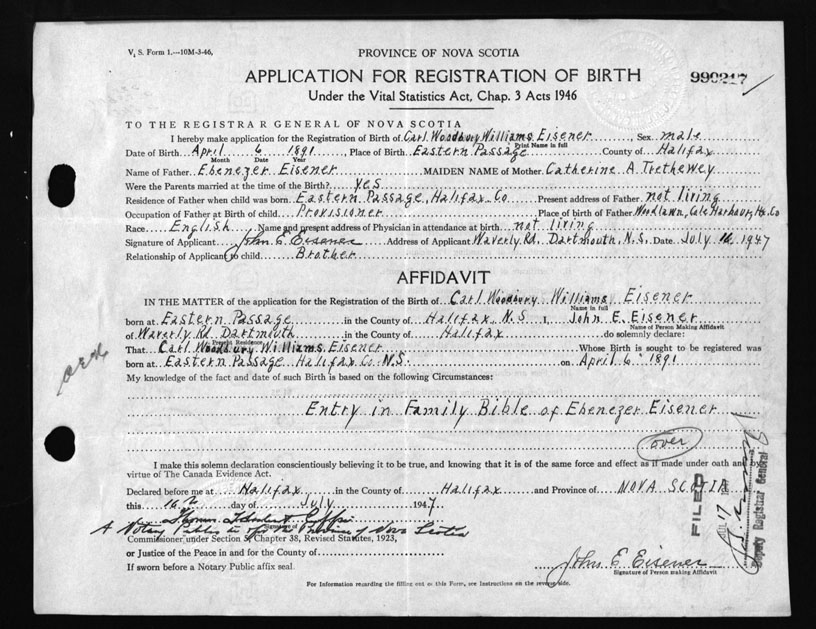 V. S. Form 1.—10M-3-46.
PROVINCE OF NOVA SCOTIA
APPLICATION FOR REGISTRATION OF BIRTH
990217
Under the Vital Statistics Act, Chap. 3 Acts 1946
TO THE REGISTRAR GENERAL OF NOVA SCOTIA
I hereby make application for the Registration of Birth of Carl Woodbury Williams Eisener, Sex male
Print Name in full
Date of Birth April 6 1891, Place of Birth Eastern Passage County of Halifax
Month Date Year
Name of Father Ebenezer Eisener MAIDEN NAME of Mother Catherine A Trethewey
Were the Parents married at the time of the Birth? yes
Residence of Father when child was born Eastern Passage, Halifax Co Present address of Father not living
Occupation of Father at Birth of child Provisioner Place of birth of Father Woodlawn, Cole Harbour, Hx. Co
Race English Name and present address of Physician in attendance at birth not living
Signature of Applicant John E. Eisener Address of Applicant Waverly Rd. Dartmouth, N.S. Date July 16 1947
Relationship of Applicant to child Brother
AFFIDAVIT
IN THE MATTER of the application for the Registration of the Birth of Carl Woodbury Williams Eisener
Name in full
born at Eastern Passage in the County of Halifax N.S I, John E. Eisener
Name of Person Making Affidavit
of Waverly Rd Dartmouth in the County of Halifax do solemnly declare:
Present Residence
That Carl Woodbury Williams Eisener Whose Birth is sought to be registered was
born at Eastern Passage Halifax Co N.S. on April 6 1891
My knowledge of the fact and date of such Birth is based on the following Circumstances:
Entry in Family Bible of Ebenezer Eisener
over
I make this solemn declaration conscientiously believing it to be true, and knowing that it is of the same force and effect as if made under oath and by
virtue of The Canada Evidence Act.
Declared before me at Halifax in the County of Halifax and Province of NOVA SCOTIA
this 16th day of July 1947
Signature of
A Notary Public in & for the Province of Nova Scotia
Commissioner under Section 5, Chapter 38, Revised Statutes, 1923,
or Justice of the Peace in and for the County of
If sworn before a Notary Public affix seal.
John E Eisener
Signature of Person making Affidavit
FILED
JUL 17
Deputy Registrar General
For Information regarding the filling out of this Form, see Instructions on the reverse side.